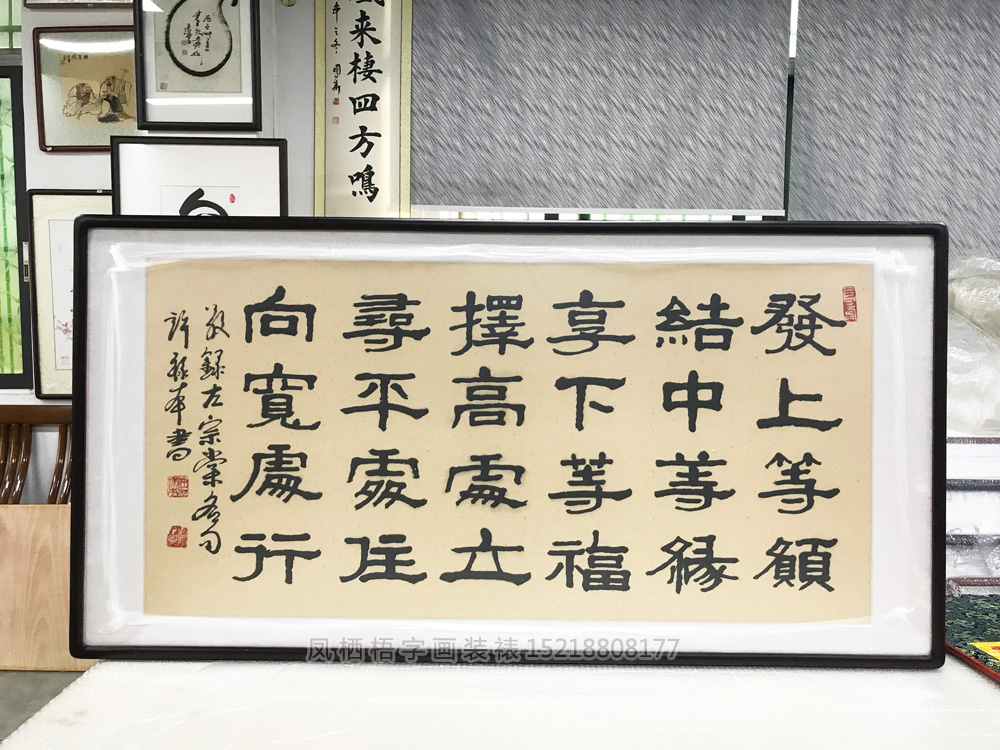 來棲四方鳴
發上等願
結中等緣
享下等福
擇高處立
尋平處住
向寬處行
敬録左宗棠名句
許 本書
凤栖梧字画装裱15218808177